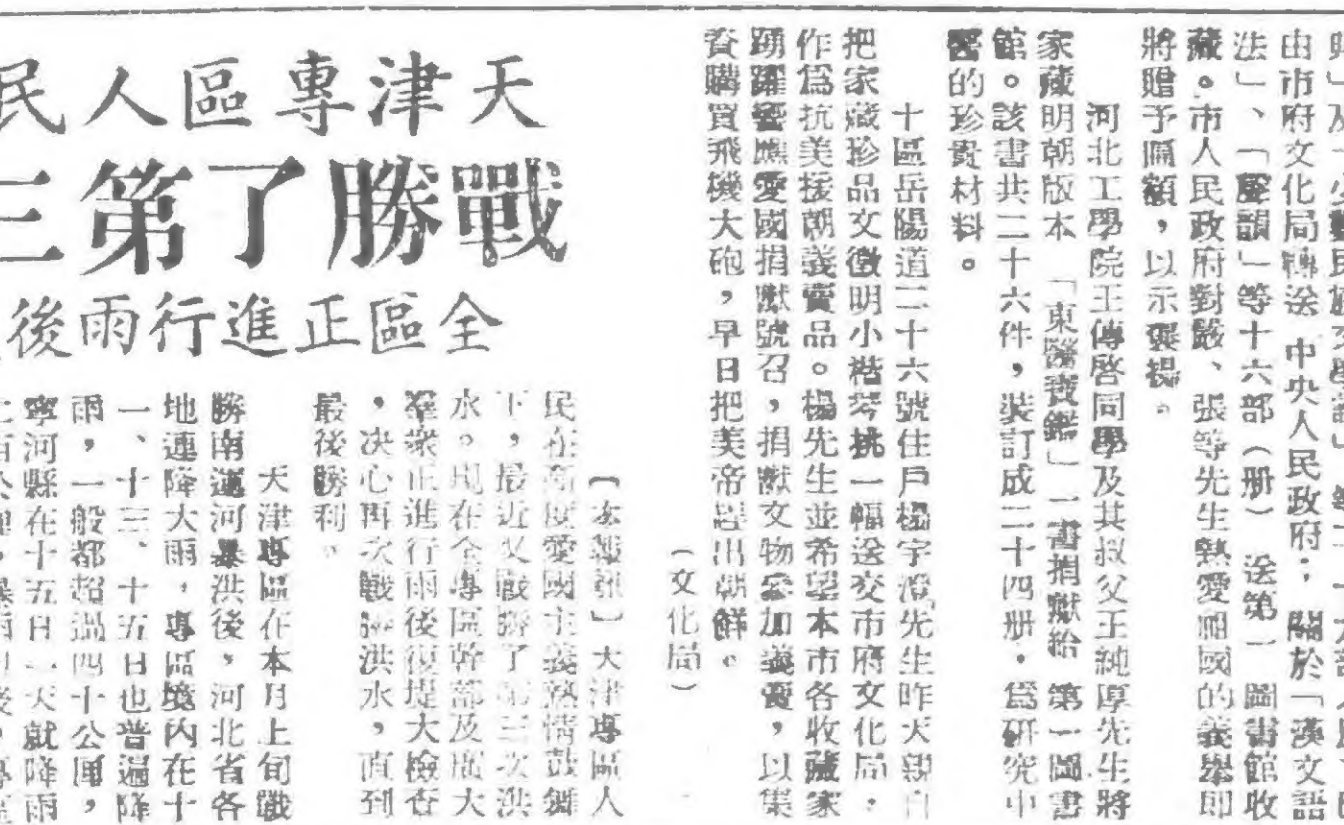 由市府文化局轉送 中央人民政府；關於「漢文語
法」、「聲韻」等十六部（册） 送第一圖書館收
藏。市人民政府對嚴、張等先生熱愛祖國的義舉即
將贈予匾額，以示褒揚。
河北工學院王傳啓同學及其叔父王純厚先生將
家藏明朝版本 「東醫寶鑑」一書捐獻給 第一圖書
館。該書共二十六件，裝訂成二十四册，爲研究中
醫的珍貴材料。
十區岳陽道二十六號住戶楊宇 先生昨天親自
把家藏珍品文徵明小楷琴 一幅送交市府文化局，
作爲抗美援朝義賣品。楊先生並希望本市各收藏家
踴躍響應愛國捐獻號召，捐獻文物參加義賣，以集
資購買飛機大砲，早日把美帝趕出朝鮮。
（文化局）
天津專區人民
戰勝了第三
全區正進行雨後
〔本報訊〕天津專區人
民在高度愛國主義熱情鼓舞
下，最近又戰勝了第三次洪
水。現在全專區幹部及廣大
羣衆正進行雨後復堤大檢查
，决心再次戰勝洪水，直到
最後勝利。
天津專區在本月上旬戰
勝南運河暴洪後，河北省各
地連降大雨，專區境內在十
一、十三、十五日也普遍降
雨，一般都超過四十公厘，
寧河縣在十五日一天就降雨